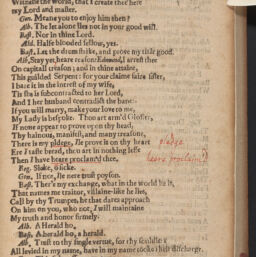 Witnesse the world, that I create thee here
my Lord and master.
Gon. Meane you to enioy him then?
Alb. The let alone lies not in your good will.
Bast. Nor in thine Lord.
Alb. Halfe blooded fellow, yes.
Bast. Let the drum strike, and proue my title good.
Alb. Stay yet, heare reason: Edmund, I arrest thee
On capitall treason; and in thine attaint,
This guilded Serpent: for your claime faire sister,
I bare it in the interest of my wife,
Tis she is subcontracted to her Lord,
And I her husband contradict the bane:
If you will marry, make your loue to me,
My Lady is bespoke. Thou art arm'd Gloster,
If none appear to proue vpon thy head,
Thy hainous, manifest, and many treasons,
There is my pledge, Ile proue it on thy heart pledge
Ere I taste bread, thou art in nothing lesse
Then I haue heere proclam'd thee. heere proclaim'd
Reg. Sicke, ô sicke.
Gon. If not, Ile nere trust poyson.
Bast. Ther's my exchange, what in the world he is,
That names me traitor, villaine-like he lies,
Call by thy Trumpet, he that dares approach
On him on you, who not, I will maintaine
My truth and honor firmely.
Alb. A Herald ho,
Bast. A herald ho, a herald.
Alb. Trust to thy single vertue, for thy souldiers
All leuied in my name, haue in my name tooke their discharge.